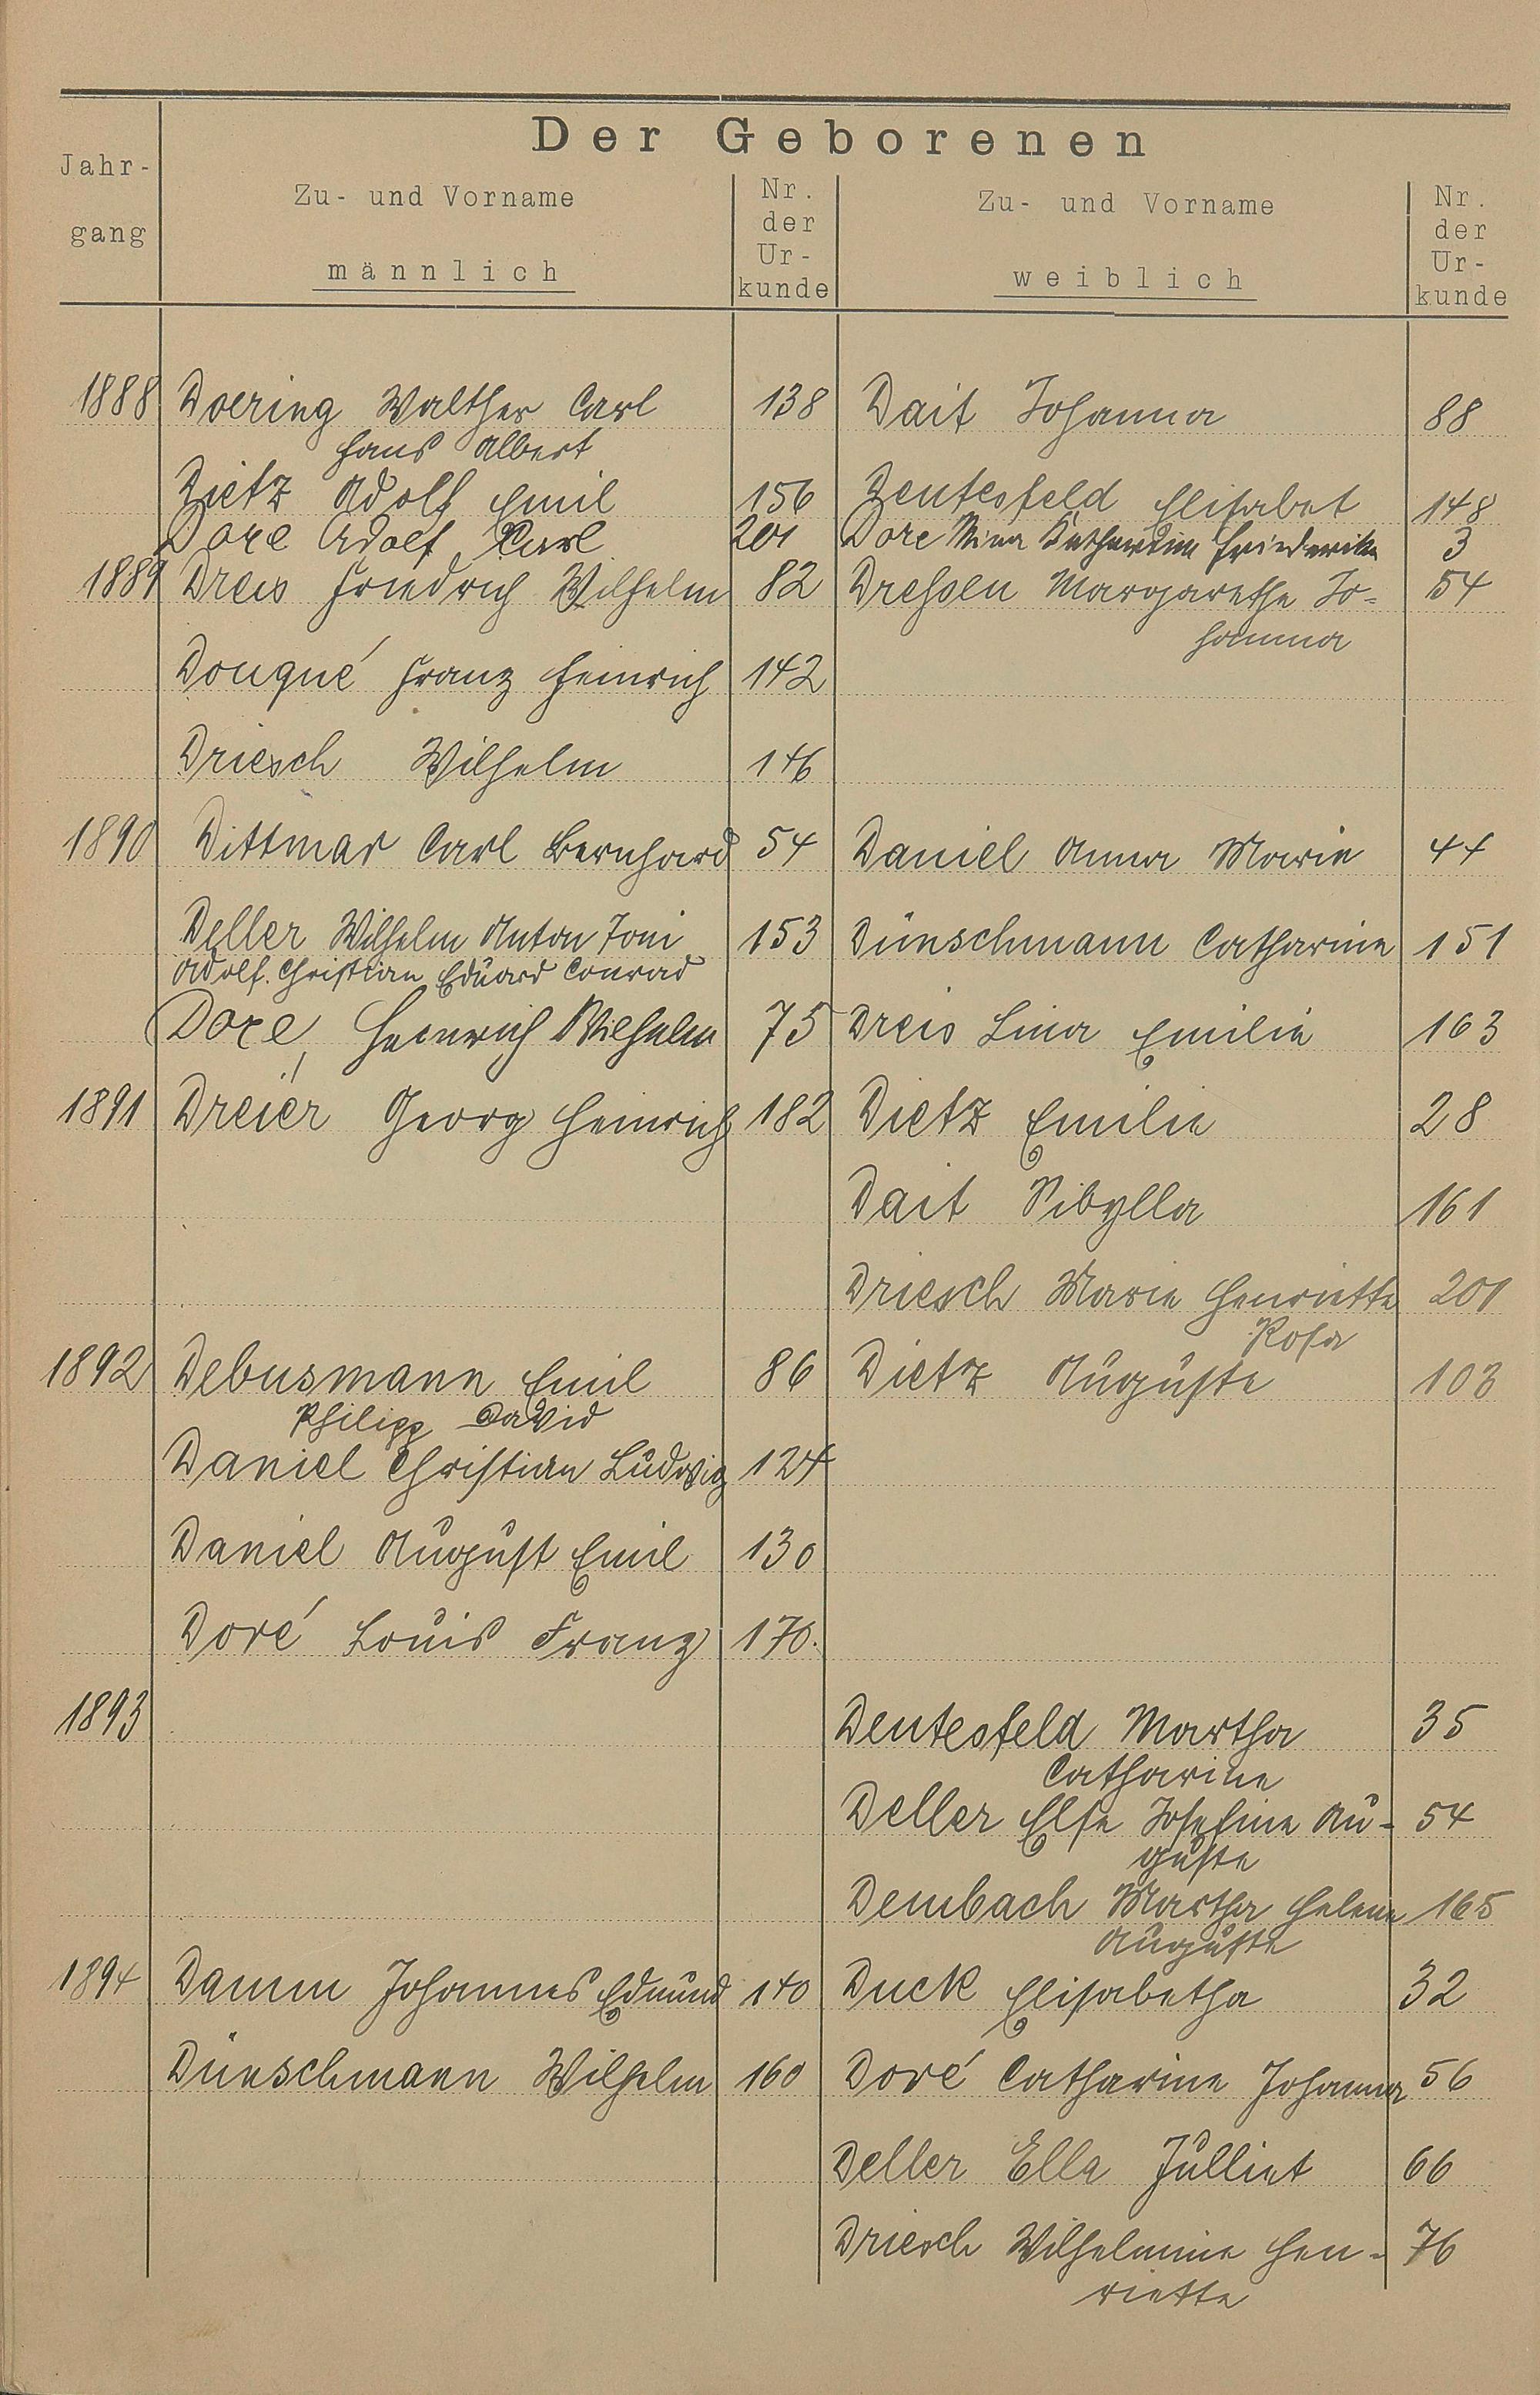 Der Geborenen
Jahr-
gang
Zu- und Vorname
männlich
Nr.
der
Ur-
kunde
Zu- und Vorname
weiblich
Nr.
der
Ur-
kunde
1888 Doering Walther Carl 138 Dait Johanna 88
Hans Albert
Dietz Adolf Emil 156 Dentesfeld Elisabet 148
Dore Adolf Carl 201 Dore Mina Katharina Friederike 3
1889 Dreis Friedrich Wilhelm 82 Dressen Margarethe Jo- 54
hanna
Douqué Franz Heinrich 142
Driesch Wilhelm 146
1890 Dittmar Carl Bernhard 54 Daniel Anna Marie 44
Deller Wilhelm Anton Toni 153 Dünschmann Catharine 151
Adolf Christian Eduard Conrad
Dore, Heinrich Wilhelm 75 Dreis Lina Emilie 163
1891 Dreier Georg Heinrich 182 Dietz Emilie 28
Dait Sibylla 161
Driesch Marie Henriette 201
Rosa
1892 Debusmann Emil 86 Dietz Auguste 103
Philipp David
Daniel Christian Ludwig 124
Daniel August Emil 130
Doré Louis Franz 170.
1893 Dentesfeld Martha 35
Catharine
Deller Else Josefine Au- 54
guste
Dembach Martha Helene 165
Auguste
1894 Damm Johannes Edmund 140 Duck Elisabetha 32
Dünschmann Wilhelm 160 Doré Catharine Johanna 56
Deller Ella Julliet 66
Driesch Wilhelmine Hen- 76
riette